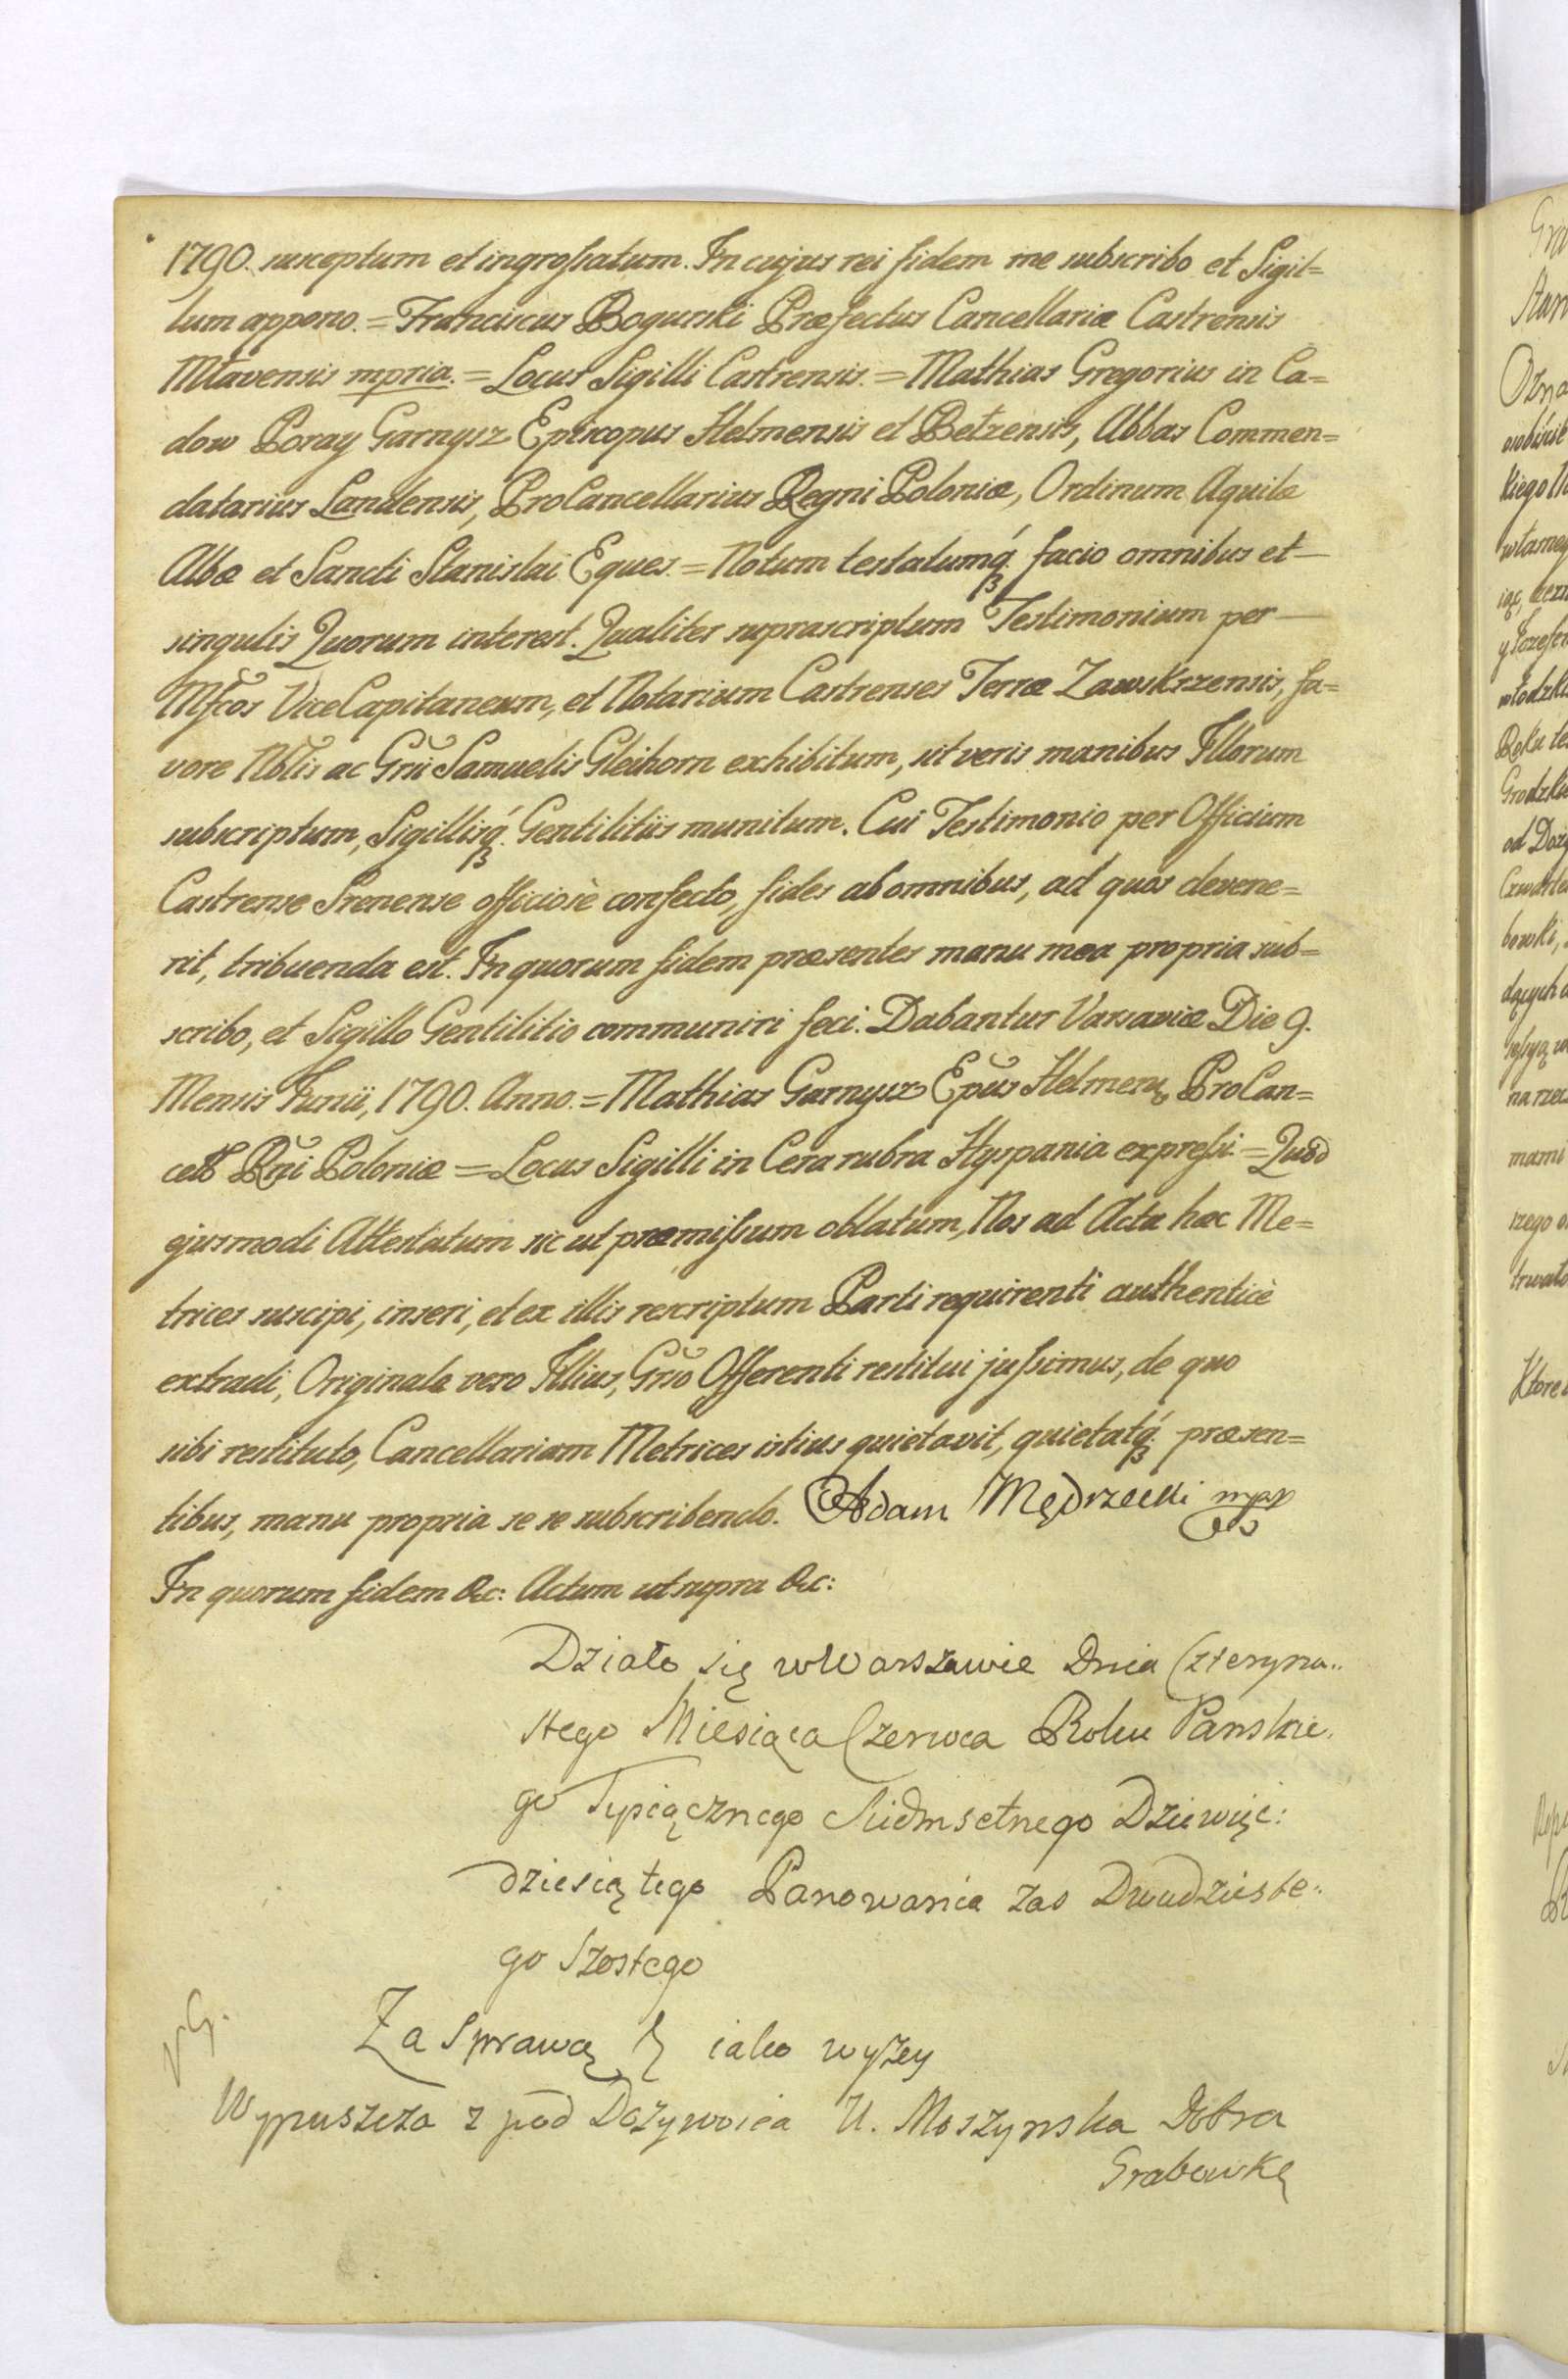 1790. susceptum et ingrossatum. In cujus rei fidem me subscribo et Sigil=
lum appono. = Franciscus Bogurski Præfectus Cancellariæ Castrensis
Mlavensis mpria. = Locus Sigilli Castrensis. = Mathias Gregorius in Ca=
dow Poray Garnysz Episcopus Helmensis et Betzensis, Abbas Commen=
datarius Landensis, ProCancellarius Regni Poloniæ, Ordinum Aquilæ
Albæ et Sancti Stanislai Eques. = Notum testatumq́ facio omnibus et
singulis Quorum interest. Qualiter suprascriptum Testimonium per
Mfcos ViceCapitaneum, et Notarium Castrenses Terræ Zawskrzensis, fa=
vore Nblis ac Grsi Samuelis Gleihorn exhibitum, sit veris manibus Illorum
subscriptum, Sigillisq́ Gentilitiis munitum. Cui Testimonio per Officium
Castrense Srenense officiosè confecto, fides ab omnibus, ad quos devene=
rit, tribuenda est. In quorum fidem præsentes manu mea propria sub=
scribo, et Sigillo Gentilitio communiri feci. Dabantur Varsaviæ Die 9.
Mensis Junii, 1790. Anno. = Mathias Garnysz Epus Helmens ProCan=
cell Rgni Poloniæ = Locus Sigilli in Cera rubra Hyspania expressi. = Quod
ejusmodi Attestatum sic ut præmissum oblatum, Nos ad Acta hæc Me=
trices suscipi, inseri, et ex illis rescriptum Parti requirenti authenticè
extradi, Originale vero Illius, Grso Offerenti restitui jussimus, de quo
sibi restituto, Cancellariam Metrices istius quietavit, quietatq́ præsen=
tibus, manu propria se se subscribendo. Adam Mędrzecki mpp
In quorum fidem &c: Actum ut supra &c:
Działo się w Warszawie Dnia Czteryna..
stego Miesiąca Czerwca Roku Panskie.
go Tysiącznego Siedmsetnego Dziewięć:
dziesiątego Panowania zas Dwudzieste..
go Szostego
VG.
Za Sprawą iako wyzey
Wypuszcza z pod Dozywocia U. Moszynska Dobra
Grabowkę